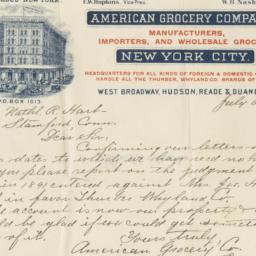 NEW YORK.
F.W. Hopkins, Vice Pres.
W.B. Nash
AMERICAN GROCERY COMPA
MANUFACTURERS,
IMPORTERS, AND WHOLESALE GROC
NEW YORK CITY.
HEADQUARTERS FOR ALL KINDS OF FOREIGN & DOMESTIC
HANDLE ALL THE THURBER, WHYLAND CO. BRANDS OF
WEST BROADWAY, HUDSON, READE & DUANE
P.O. BOX 1013.
July
Nathl. R. Hart
Stamford Conn
Dear Sir,
Confirming our letters
date to which we have recd no
you please report on the judgment
in 1891 entered against Mrs Geo. H
in favor Thurber Whyland Co.
account is now our property &
be glad if we could get
of it.
Yours truly,
American Grocery Co